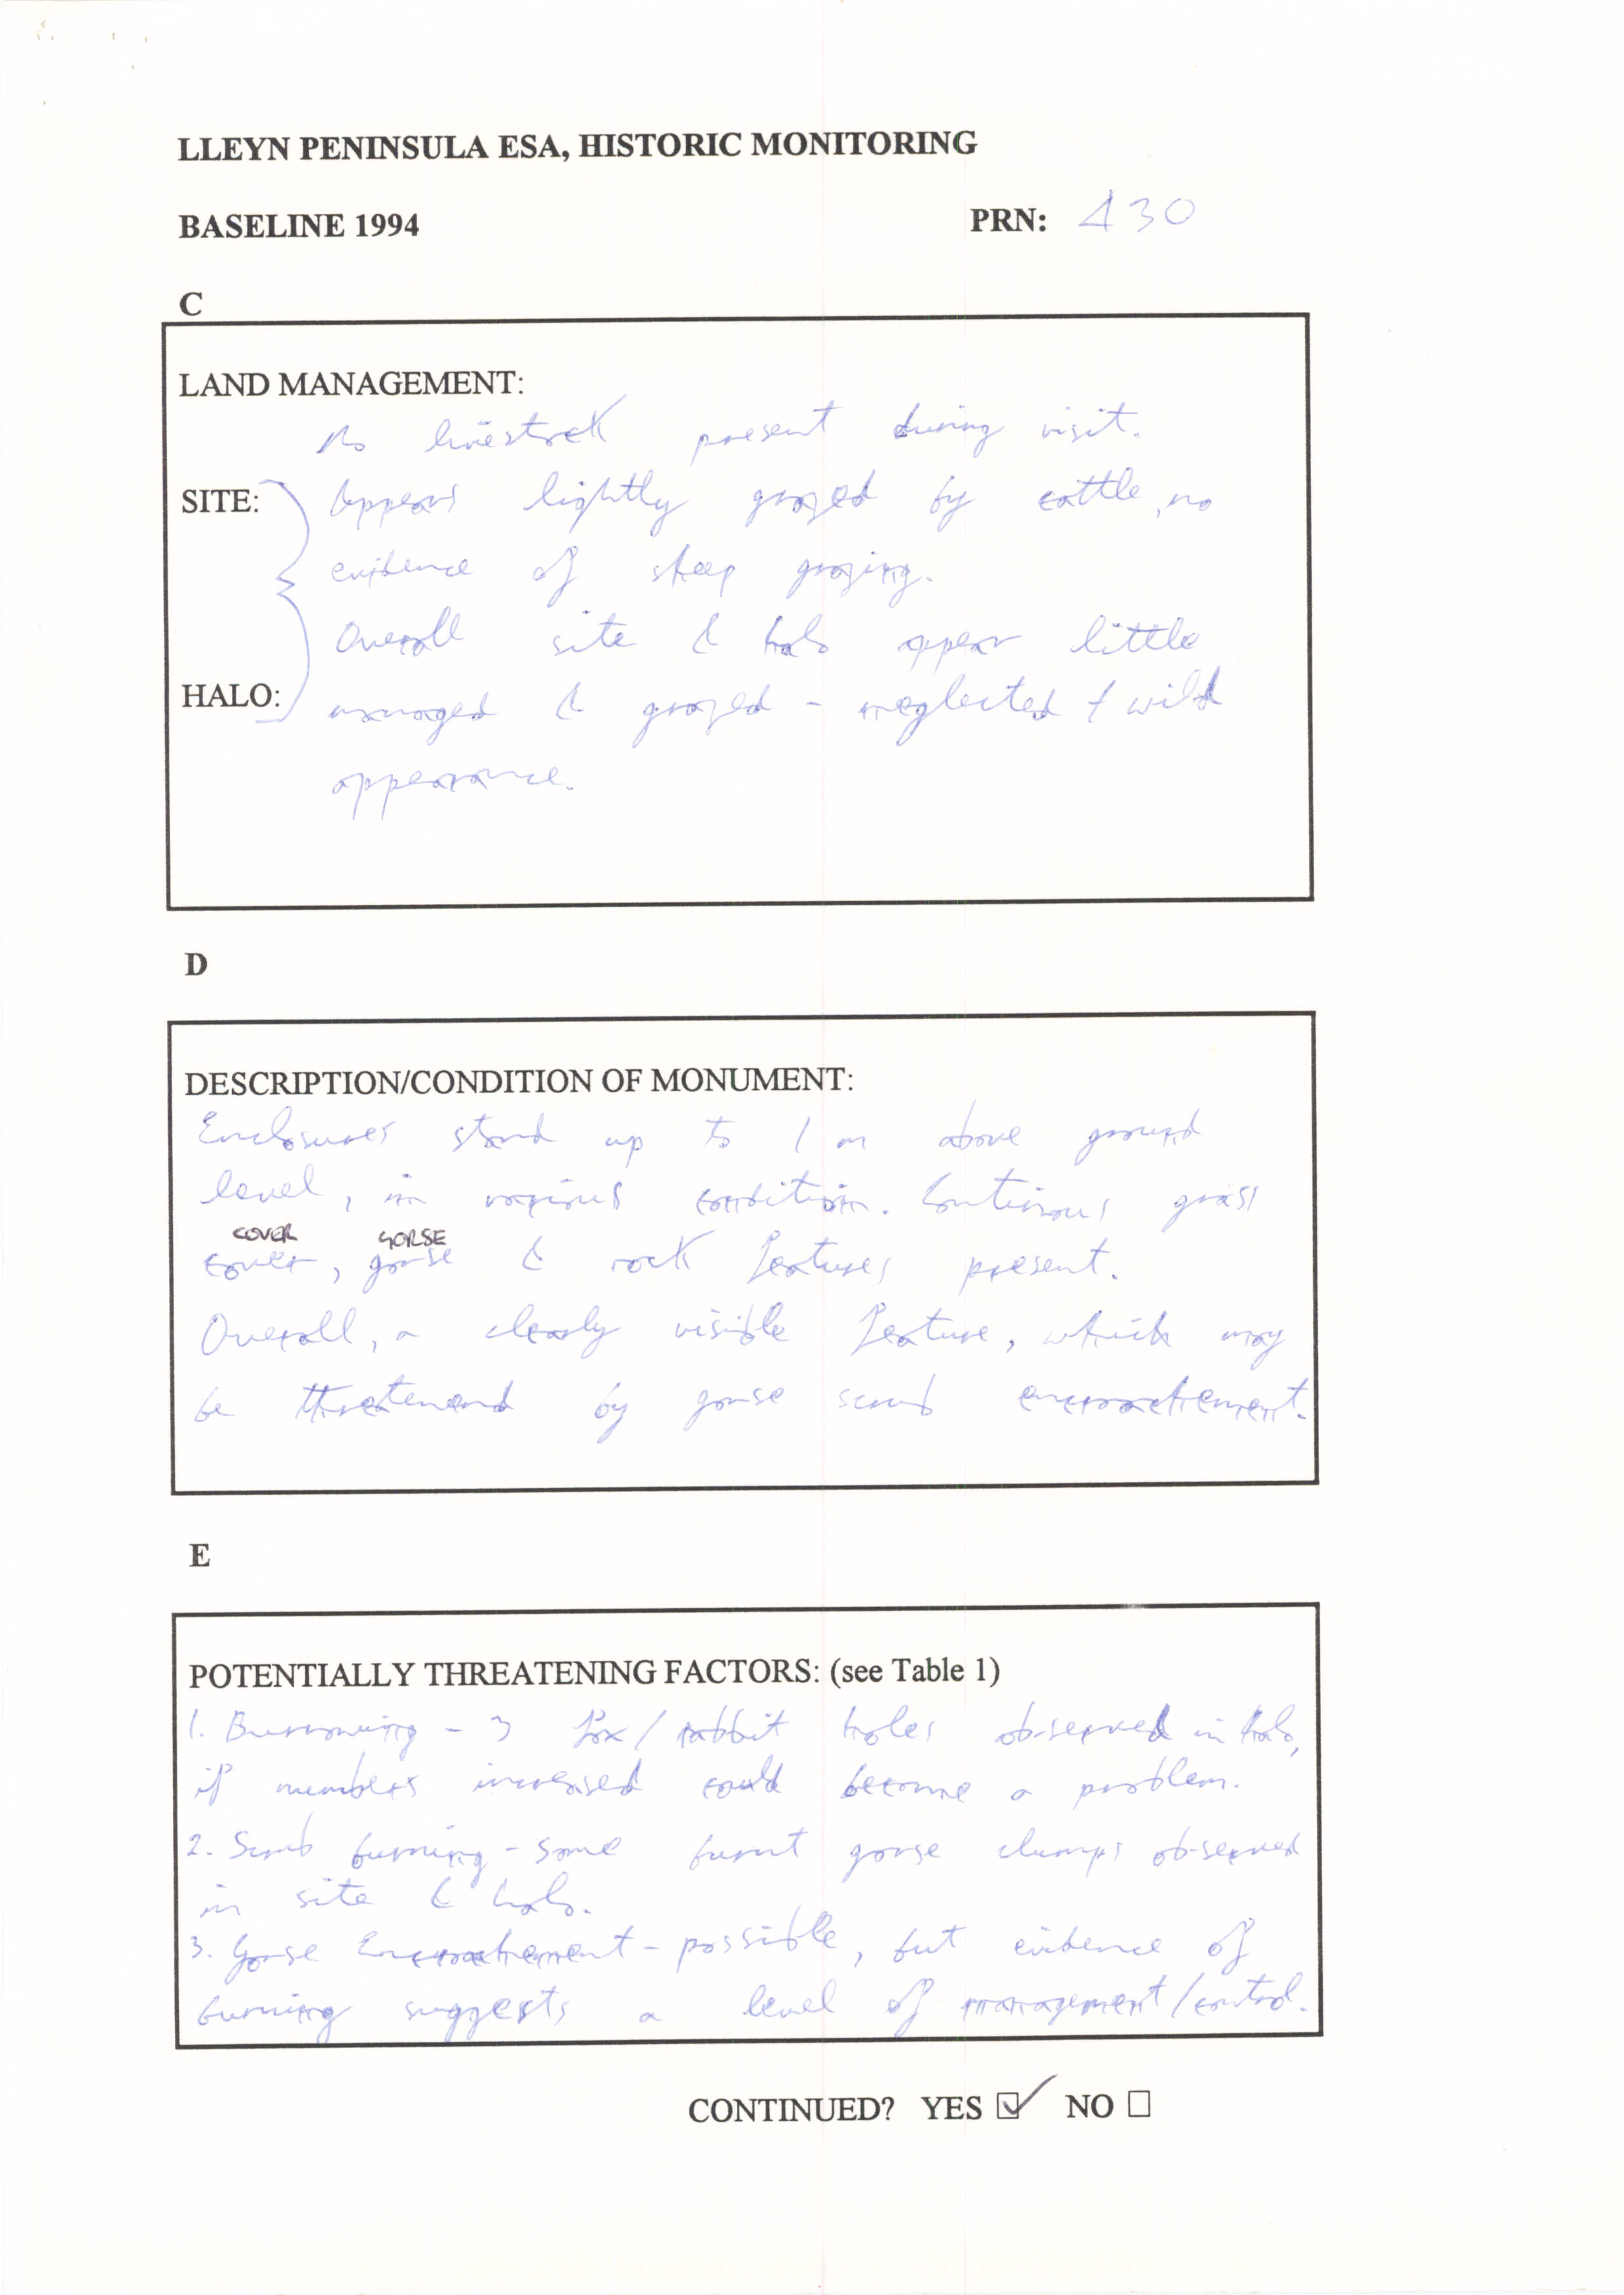 LLEYN PENINSULA ESA, HISTORIC MONITORING
BASELINE 1994 PRN: 430
C
LAND MANAGEMENT:
No livestock present during visit.
SITE: Appears lightly grazed by cattle, no
evidence of sheep grazing.
Overall site & halo appear little
HALO: managed & grazed - neglected & wild
appearance.
D
DESCRIPTION/CONDITION OF MONUMENT:
Enclosures stand up to 1 m above ground
level, in various condition. Continous grass
COVER GORSE
cover, gorse & rock features present.
Overall, a clearly visible feature, which may
be threatend by gorse scrub encroachement.
E
POTENTIALLY THREATENING FACTORS: (see Table 1)
1. Burrowing - 3 fox/rabbit holes observed in halo,
if numbers increased could become a problem.
2. Scrub burning - some burnt gorse clumps observed
in site & halo.
3. Gorse Encroachement - possible, but evidence of
burning suggests a level of management/control.
CONTINUED? YES ☑ NO ☐